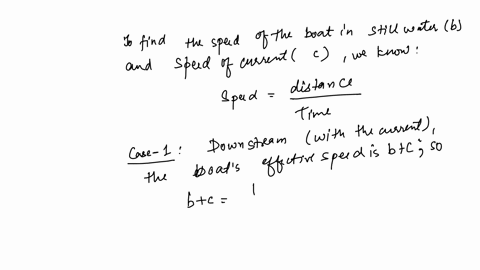 To find the speed of the boat in still water (b)
and speed of current ( c ) , we know :
Speed = distance / Time
Case-1 : Downstream (with the current),
the boat's effective speed is b+c ; so
b+c =